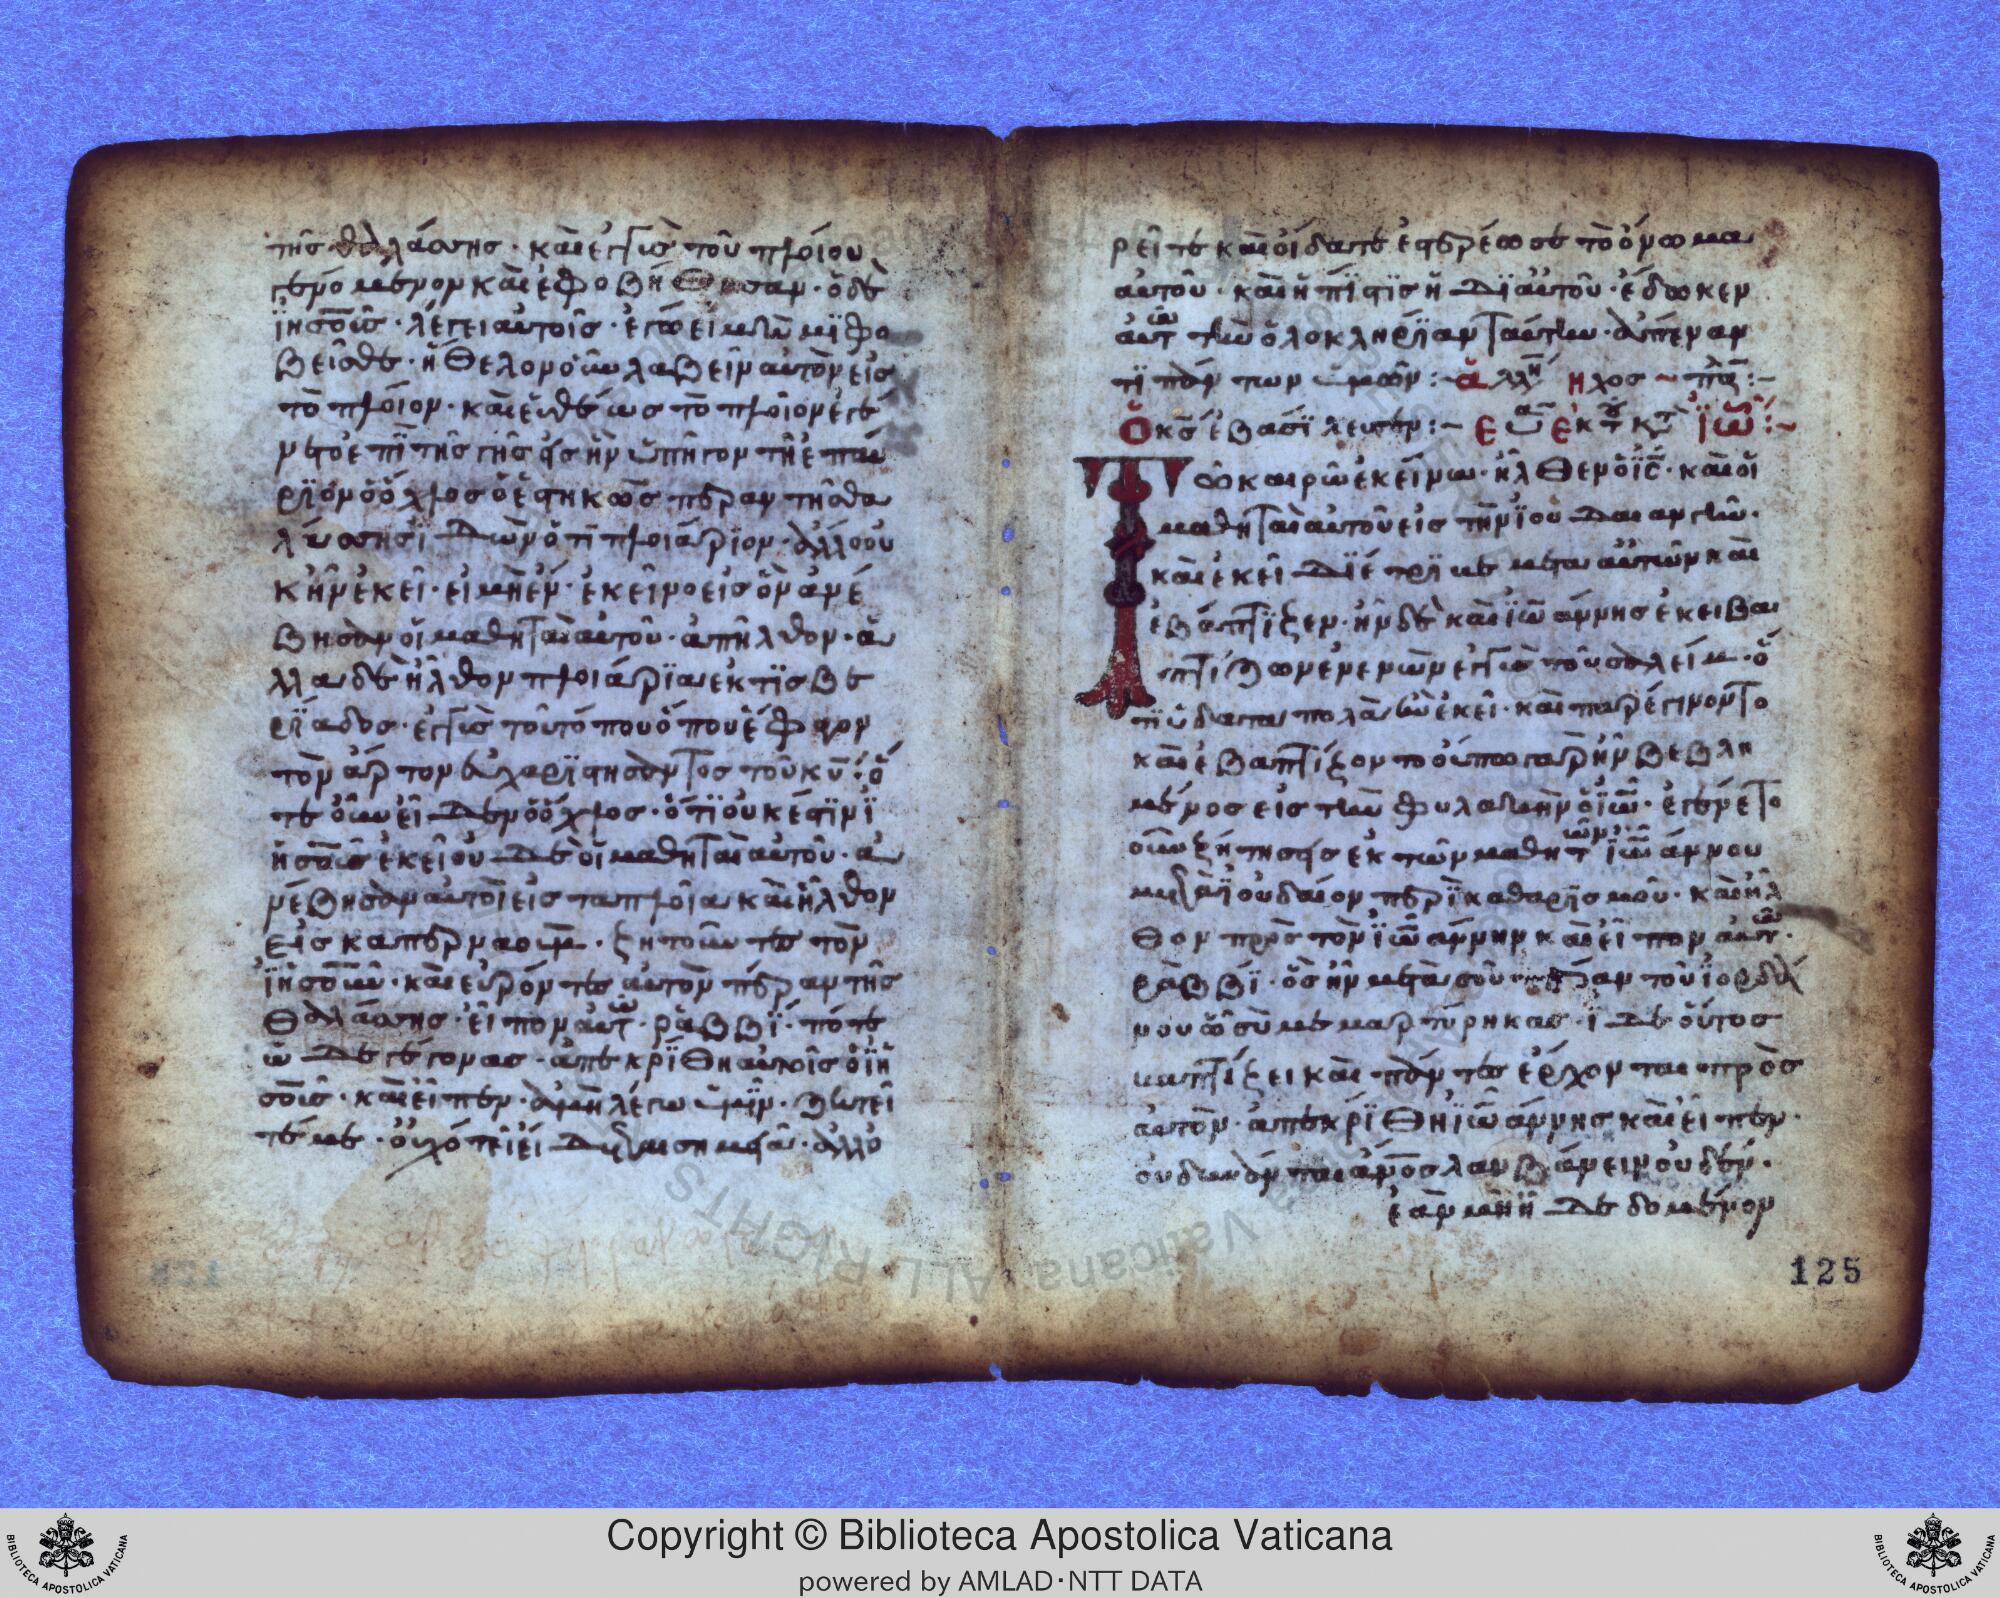 τῆς θαλάσσης · καὶ ἐγγὺς τοῦ πλοίου
γενόμενον καὶ ἐφοβήθησαν · ὁ δὲ
ἰησοῦς · λέγει αὐτοῖς · ἐγώ εἰμι μὴ φο
βεῖσθε · ἤθελον οὖν λαβεῖν αὐτὸν εἰς
τὸ πλοῖον · καὶ εὐθέως τὸ πλοῖον ἐγέ
νετο ἐπὶ τῆς γῆς εἰς ἣν ὑπῆγον τῇ ἐπαύ
ριον ὁ ὄχλος ὁ ἑστηκὼς πέραν τῆς θα
λάσσης ἰδὼν ὅτι πλοιάριον · ἄλλο οὐ
κ ἦν ἐκεῖ · εἰ μὴ ἓν · ἐκεῖνο εἰς ὃ ἀνέ
βησαν οἱ μαθηταὶ αὐτοῦ · ἀπῆλθον · ἄ
λλα δὲ ἦλθον πλοιάρια ἐκ τῆς βε
ριάδος · ἐγγὺς τοῦ τόπου ὅπου ἔφαγον
τὸν ἄρτον εὐχαριστήσαντος τοῦ κυ · ὅ
τε οὖν εἶδεν ὁ ὄχλος · ὅτι οὐκ ἔστιν ἰ
ησοῦς ἐκεῖ οὐδὲ οἱ μαθηταὶ αὐτοῦ · ἀ
νέβησαν αὐτοὶ εἰς τὰ πλοῖα καὶ ἦλθον
εἰς καπερναοὺμ · ζητοῦντες τὸν
ἰησοῦν · καὶ εὑρόντες αὐτὸν πέραν τῆς
θαλάσσης · εἶπον αὐτῶ · ῥαββί · πότε
ὧδε γέγονας · ἀπεκρίθη αὐτοῖς ὁ ἰη
σοῦς · καὶ εἶπεν · ἀμὴν λέγω ὑμῖν · ζητεῖ
τέ με · οὐχ ὅτι εἴδετε σημεῖα · ἀλλ ὁ
ρεῖτε καὶ οἴδατε ἐστερέωσε τὸ ὄνομα
αὐτοῦ · καὶ ἡ πίστις ἡ δι αὐτοῦ · ἔδωκεν
αὐτῶ τὴν ὁλοκληρίαν ταύτην · ἀπέναν
τι πάντων ὑμῶν :~ ἀλλη ηχος ~ πλ α :~
Ὁ κς ἐβασίλευσεν :~ Ευα εκ του κτ ἰω :~
Τῶ καιρῶ ἐκείνω · ἦλθεν ὁ ις · καὶ οἱ
μαθηταὶ αὐτοῦ εἰς τὴν ἰουδαίαν γῆν ·
καὶ ἐκεῖ διέτριβε μετ αὐτῶν καὶ
ἐβάπτιζεν · ἦν δὲ καὶ ἰωάννης ἐκεῖ βα
πτίζων ἐν ἐνὼν ἐγγὺς τοῦ σαλείμ · ὅ
τι ὕδατα πολλὰ ἦν ἐκεῖ · καὶ παρεγίνοντο
καὶ ἐβαπτίζοντο οὔπω γὰρ ἦν βεβλη
μένος εἰς τὴν φυλακὴν ὁ ἰω · ἐγένετο
οὖν ζήτησις ἐκ τῶν μαθητῶν ἰωάννου
μετὰ ἰουδαίου περὶ καθαρισμοῦ · καὶ ἦλ
θον πρὸς τὸν ἰωάννην καὶ εἶπον αὐτῶ ·
ῥαββί · ὃς ἦν μετὰ σοῦ πέραν τοῦ ἰορδά
νου ὧ σὺ μεμαρτύρηκας · ἴδε οὗτος
βαπτίζει καὶ πάντες ἔρχονται πρὸς
αὐτὸν · ἀπεκρίθη ἰωάννης καὶ εἶπεν ·
οὐ δύναται ανος λαμβάνειν οὐδὲν ·
ἐὰν μὴ ἦ δεδομένον
125
Copyright © Biblioteca Apostolica Vaticana
powered by AMLAD·NTT DATA